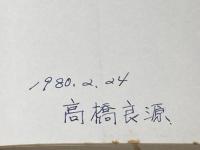 1980.2.24
高橋良源